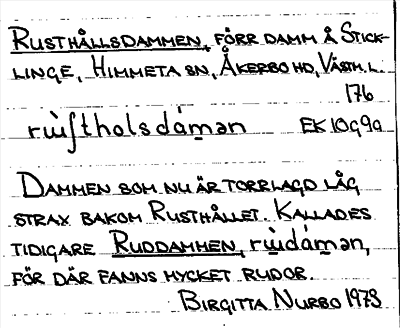 RUSTHÅLLSDAMMEN, FÖRR DAMM Å STICK-
LINGE, HIMMETA SN, ÅKERBO HD, VÄSTM. L.
176
EK 10G9a
DAMMEN SOM NU ÄR TORRLAGD LÅG
STRAX BAKOM RUSTHÅLLET. KALLADES
TIDIGARE RUDDAMMEN,
FÖR DÄR FANNS MYCKET RUDOR.
BIRGITTA NURBO 1978